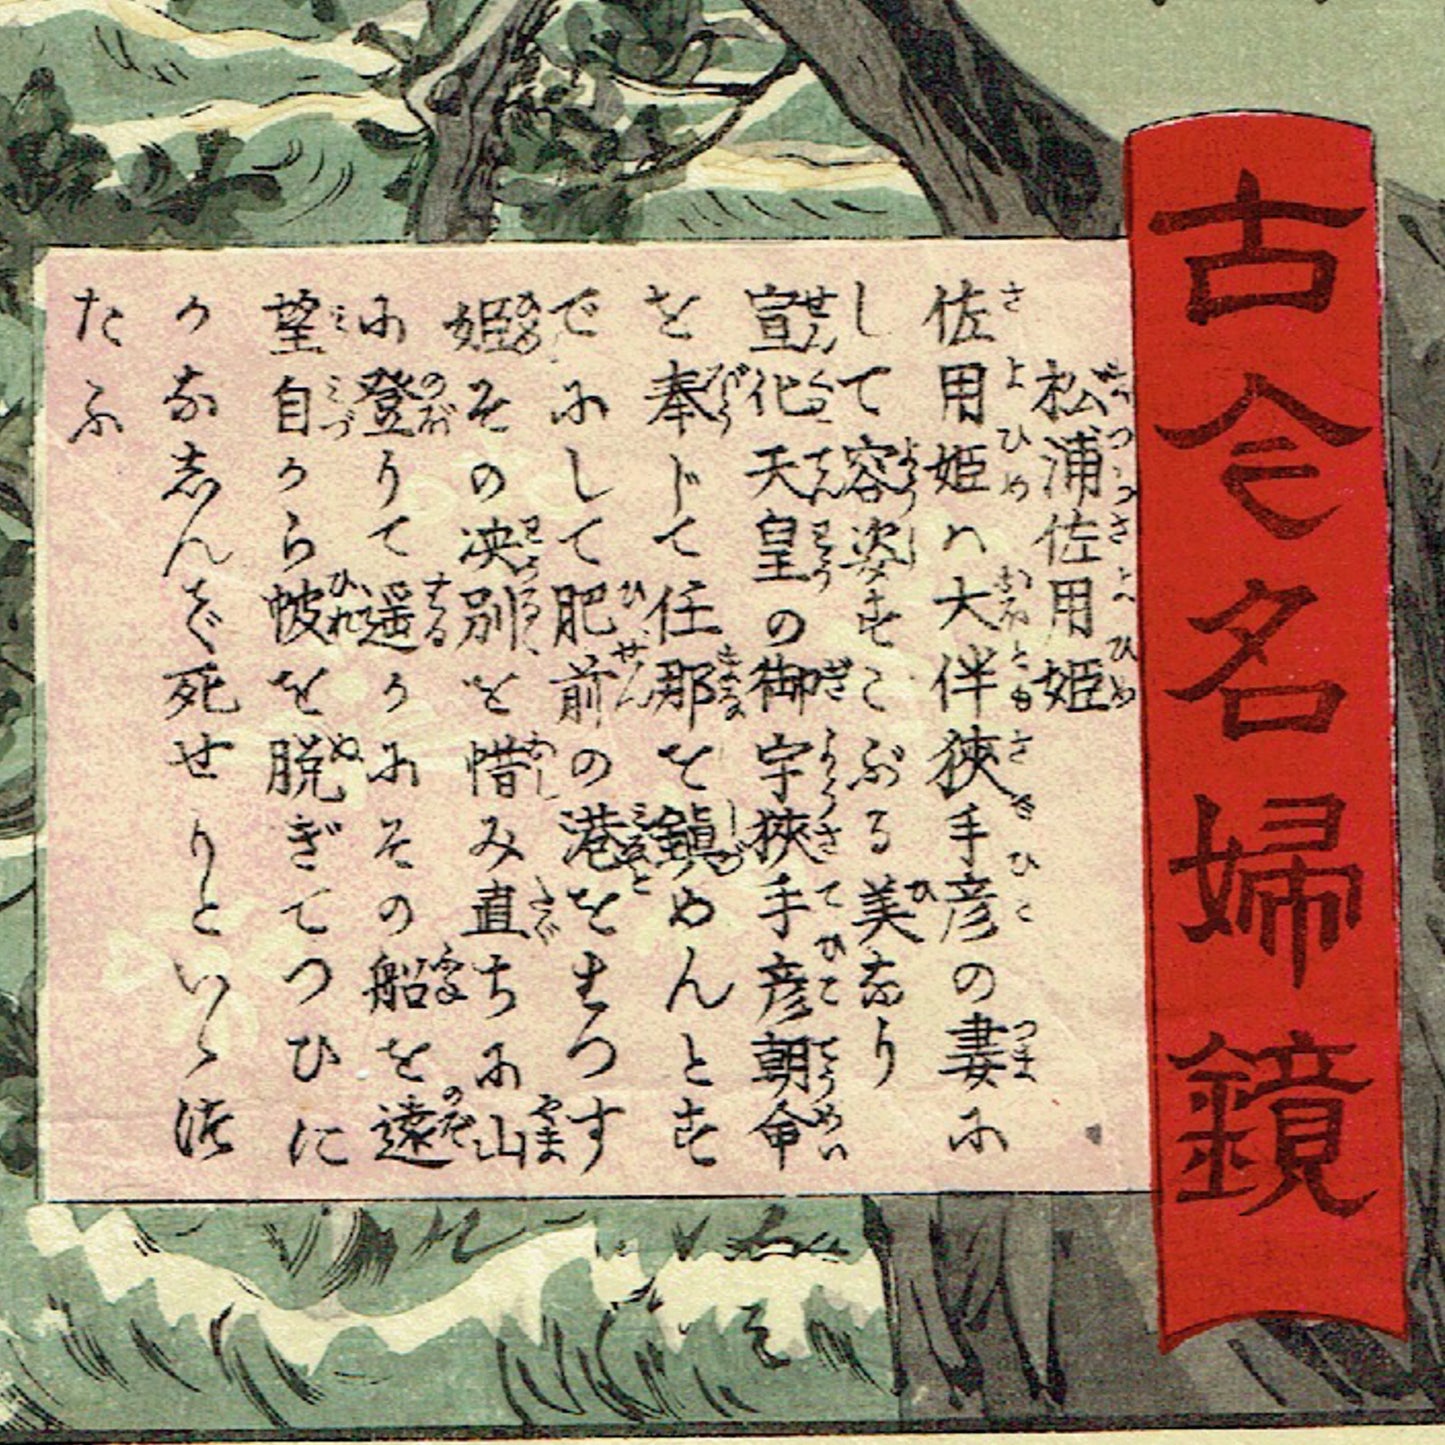 古今名婦鏡
松浦佐用姫
佐用姫ハ大伴狭手彦の妻に
して容姿すこぶる美なり
宣化天皇の御宇狭手彦朝命
を奉じて任那を鎮めんとす
でにして肥前の港をはつす
姫その决別を惜み直ちに山
に登りて遥かにその船を遠
望自から帔を脱ぎてつひに
かなしんで死せりといゝ伝
たふ